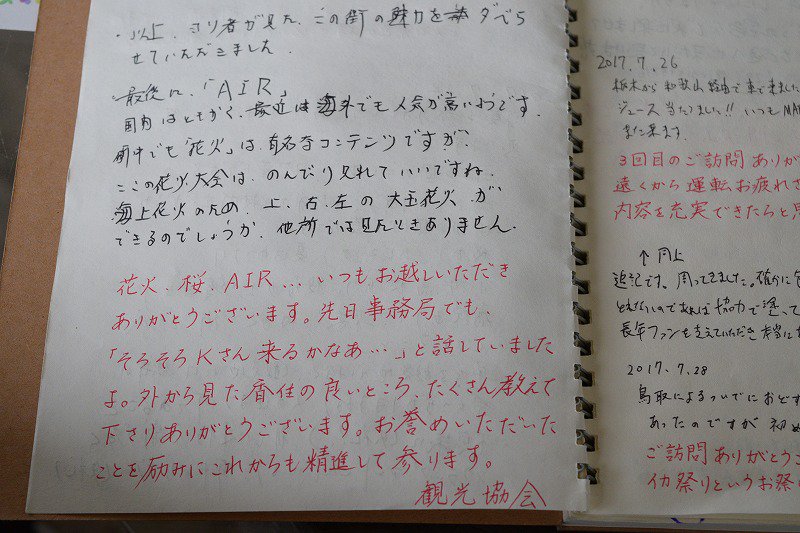 ・以上、ヨソ者が見た、この街の魅力を述べら
せていただきました。
最後に、「AIR」
国内はともかく、最近は海外でも人気が高いようです。
劇中でも「花火」は、有名なコンテンツですが、
ここの花火大会は、のんびり見れていいですね。
海上花火のため、上、右、左の大玉花火が
できるのでしょうか、他所では見たときありません。
花火、桜、AIR...いつもお越しいただき
ありがとうございます。先日事務局でも、
「そろそろKさん来るかなあ…」と話していました
よ。外から見た香住の良いところ、たくさん教えて
下さりありがとうございます。お誉めいただいた
ことを励みにこれからも精進して参ります。
観光協会
2017.7.26
栃木から和歌山経由で車で来ました
ジュース当たりました!! いつも
また来ます。
3回目のご訪問ありが
遠くから運転お疲れさ
内容を充実できたらと思
↑同上
追記です。周ってきました。確かに
協力で塗って
長年ファンを支えていただき本当に
2017.7.28
鳥取によるついでに
あったのですが初め
ご訪問ありがとうご
イカ祭りというお祭